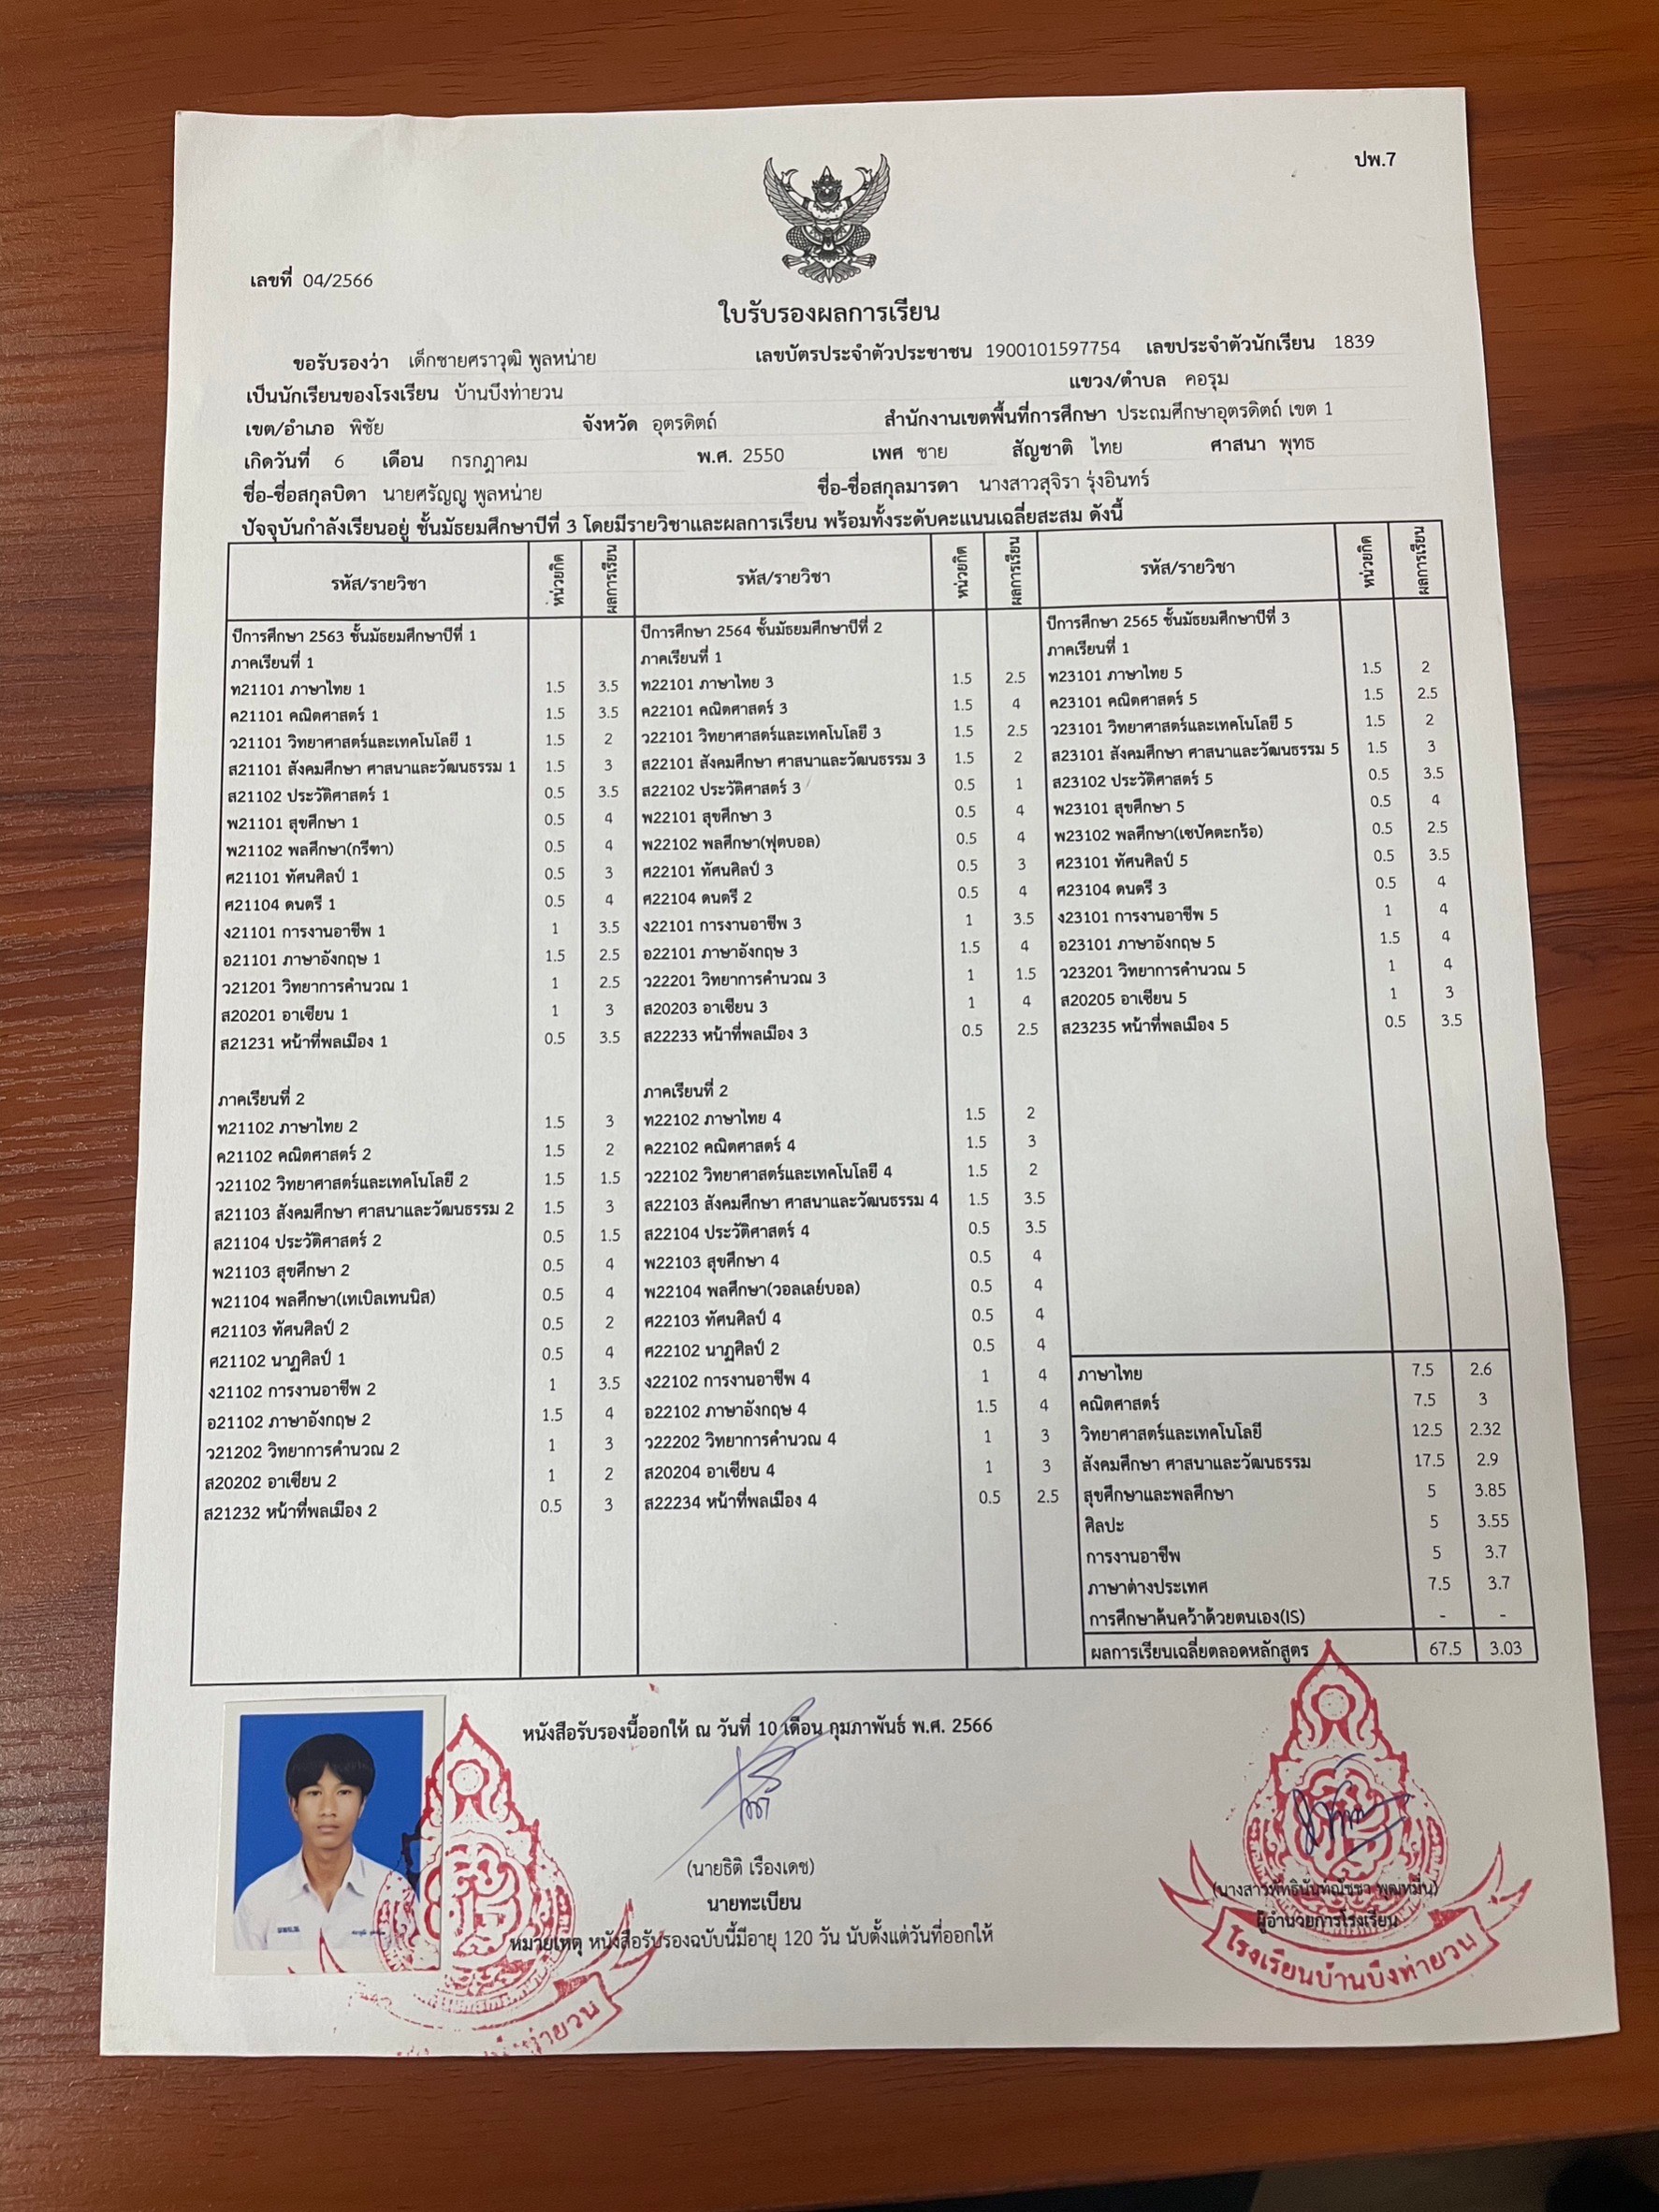 ปพ.7
เลขที่ 04/2566
ใบรับรองผลการเรียน
ขอรับรองว่า เด็กชายศราวุฒิ พูลหน่าย เลขบัตรประจำตัวประชาชน 1900101597754 เลขประจำตัวนักเรียน 1839
เป็นนักเรียนของโรงเรียน บ้านบึงท่ายวน แขวง/ตำบล คอรุม
เขต/อำเภอ พิชัย จังหวัด อุตรดิตถ์ สำนักงานเขตพื้นที่การศึกษา ประถมศึกษาอุตรดิตถ์ เขต 1
เกิดวันที่ 6 เดือน กรกฎาคม พ.ศ. 2550 เพศ ชาย สัญชาติ ไทย ศาสนา พุทธ
ชื่อ-ชื่อสกุลบิดา นายศรัญญู พูลหน่าย ชื่อ-ชื่อสกุลมารดา นางสาวสุจิรา รุ่งอินทร์
ปัจจุบันกำลังเรียนอยู่ ชั้นมัธยมศึกษาปีที่ 3 โดยมีรายวิชาและผลการเรียน พร้อมทั้งระดับคะแนนเฉลี่ยสะสม ดังนี้
รหัส/รายวิชา หน่วยกิต ผลการเรียน
ปีการศึกษา 2563 ชั้นมัธยมศึกษาปีที่ 1
ภาคเรียนที่ 1
ท21101 ภาษาไทย 1 1.5 3.5
ค21101 คณิตศาสตร์ 1 1.5 3.5
ว21101 วิทยาศาสตร์และเทคโนโลยี 1 1.5 2
ส21101 สังคมศึกษา ศาสนาและวัฒนธรรม 1 1.5 3
ส21102 ประวัติศาสตร์ 1 0.5 3.5
พ21101 สุขศึกษา 1 0.5 4
พ21102 พลศึกษา(กรีฑา) 0.5 4
ศ21101 ทัศนศิลป์ 1 0.5 3
ศ21104 ดนตรี 1 0.5 4
ง21101 การงานอาชีพ 1 1 3.5
อ21101 ภาษาอังกฤษ 1 1.5 2.5
ว21201 วิทยาการคำนวณ 1 1 2.5
ส20201 อาเซียน 1 1 3
ส21231 หน้าที่พลเมือง 1 0.5 3.5
ภาคเรียนที่ 2
ท21102 ภาษาไทย 2 1.5 3
ค21102 คณิตศาสตร์ 2 1.5 2
ว21102 วิทยาศาสตร์และเทคโนโลยี 2 1.5 1.5
ส21103 สังคมศึกษา ศาสนาและวัฒนธรรม 2 1.5 3
ส21104 ประวัติศาสตร์ 2 0.5 1.5
พ21103 สุขศึกษา 2 0.5 4
พ21104 พลศึกษา(เทเบิลเทนนิส) 0.5 4
ศ21103 ทัศนศิลป์ 2 0.5 2
ศ21102 นาฏศิลป์ 1 0.5 4
ง21102 การงานอาชีพ 2 1 3.5
อ21102 ภาษาอังกฤษ 2 1.5 4
ว21202 วิทยาการคำนวณ 2 1 3
ส20202 อาเซียน 2 1 2
ส21232 หน้าที่พลเมือง 2 0.5 3
รหัส/รายวิชา หน่วยกิต ผลการเรียน
ปีการศึกษา 2564 ชั้นมัธยมศึกษาปีที่ 2
ภาคเรียนที่ 1
ท22101 ภาษาไทย 3 1.5 2.5
ค22101 คณิตศาสตร์ 3 1.5 4
ว22101 วิทยาศาสตร์และเทคโนโลยี 3 1.5 2.5
ส22101 สังคมศึกษา ศาสนาและวัฒนธรรม 3 1.5 2
ส22102 ประวัติศาสตร์ 3 0.5 1
พ22101 สุขศึกษา 3 0.5 4
พ22102 พลศึกษา(ฟุตบอล) 0.5 4
ศ22101 ทัศนศิลป์ 3 0.5 3
ศ22104 ดนตรี 2 0.5 4
ง22101 การงานอาชีพ 3 1 3.5
อ22101 ภาษาอังกฤษ 3 1.5 4
ว22201 วิทยาการคำนวณ 3 1 1.5
ส20203 อาเซียน 3 1 4
ส22233 หน้าที่พลเมือง 3 0.5 2.5
ภาคเรียนที่ 2
ท22102 ภาษาไทย 4 1.5 2
ค22102 คณิตศาสตร์ 4 1.5 3
ว22102 วิทยาศาสตร์และเทคโนโลยี 4 1.5 2
ส22103 สังคมศึกษา ศาสนาและวัฒนธรรม 4 1.5 3.5
ส22104 ประวัติศาสตร์ 4 0.5 3.5
พ22103 สุขศึกษา 4 0.5 4
พ22104 พลศึกษา(วอลเลย์บอล) 0.5 4
ศ22103 ทัศนศิลป์ 4 0.5 4
ศ22102 นาฏศิลป์ 2 0.5 4
ง22102 การงานอาชีพ 4 1 4
อ22102 ภาษาอังกฤษ 4 1.5 4
ว22202 วิทยาการคำนวณ 4 1 3
ส20204 อาเซียน 4 1 3
ส22234 หน้าที่พลเมือง 4 0.5 2.5
รหัส/รายวิชา หน่วยกิต ผลการเรียน
ปีการศึกษา 2565 ชั้นมัธยมศึกษาปีที่ 3
ภาคเรียนที่ 1
ท23101 ภาษาไทย 5 1.5 2
ค23101 คณิตศาสตร์ 5 1.5 2.5
ว23101 วิทยาศาสตร์และเทคโนโลยี 5 1.5 2
ส23101 สังคมศึกษา ศาสนาและวัฒนธรรม 5 1.5 3
ส23102 ประวัติศาสตร์ 5 0.5 3.5
พ23101 สุขศึกษา 5 0.5 4
พ23102 พลศึกษา(เซปัคตะกร้อ) 0.5 2.5
ศ23101 ทัศนศิลป์ 5 0.5 3.5
ศ23104 ดนตรี 3 0.5 4
ง23101 การงานอาชีพ 5 1 4
อ23101 ภาษาอังกฤษ 5 1.5 4
ว23201 วิทยาการคำนวณ 5 1 4
ส20205 อาเซียน 5 1 3
ส23235 หน้าที่พลเมือง 5 0.5 3.5
ภาษาไทย 7.5 2.6
คณิตศาสตร์ 7.5 3
วิทยาศาสตร์และเทคโนโลยี 12.5 2.32
สังคมศึกษา ศาสนาและวัฒนธรรม 17.5 2.9
สุขศึกษาและพลศึกษา 5 3.85
ศิลปะ 5 3.55
การงานอาชีพ 5 3.7
ภาษาต่างประเทศ 7.5 3.7
การศึกษาค้นคว้าด้วยตนเอง(IS) - -
ผลการเรียนเฉลี่ยตลอดหลักสูตร 67.5 3.03
หนังสือรับรองนี้ออกให้ ณ วันที่ 10 เดือน กุมภาพันธ์ พ.ศ. 2566
(นายธิติ เรืองเดช)
นายทะเบียน
หมายเหตุ หนังสือรับรองฉบับนี้มีอายุ 120 วัน นับตั้งแต่วันที่ออกให้
ผู้อำนวยการโรงเรียน
โรงเรียนบ้านบึงท่ายวน
ท่ายวน